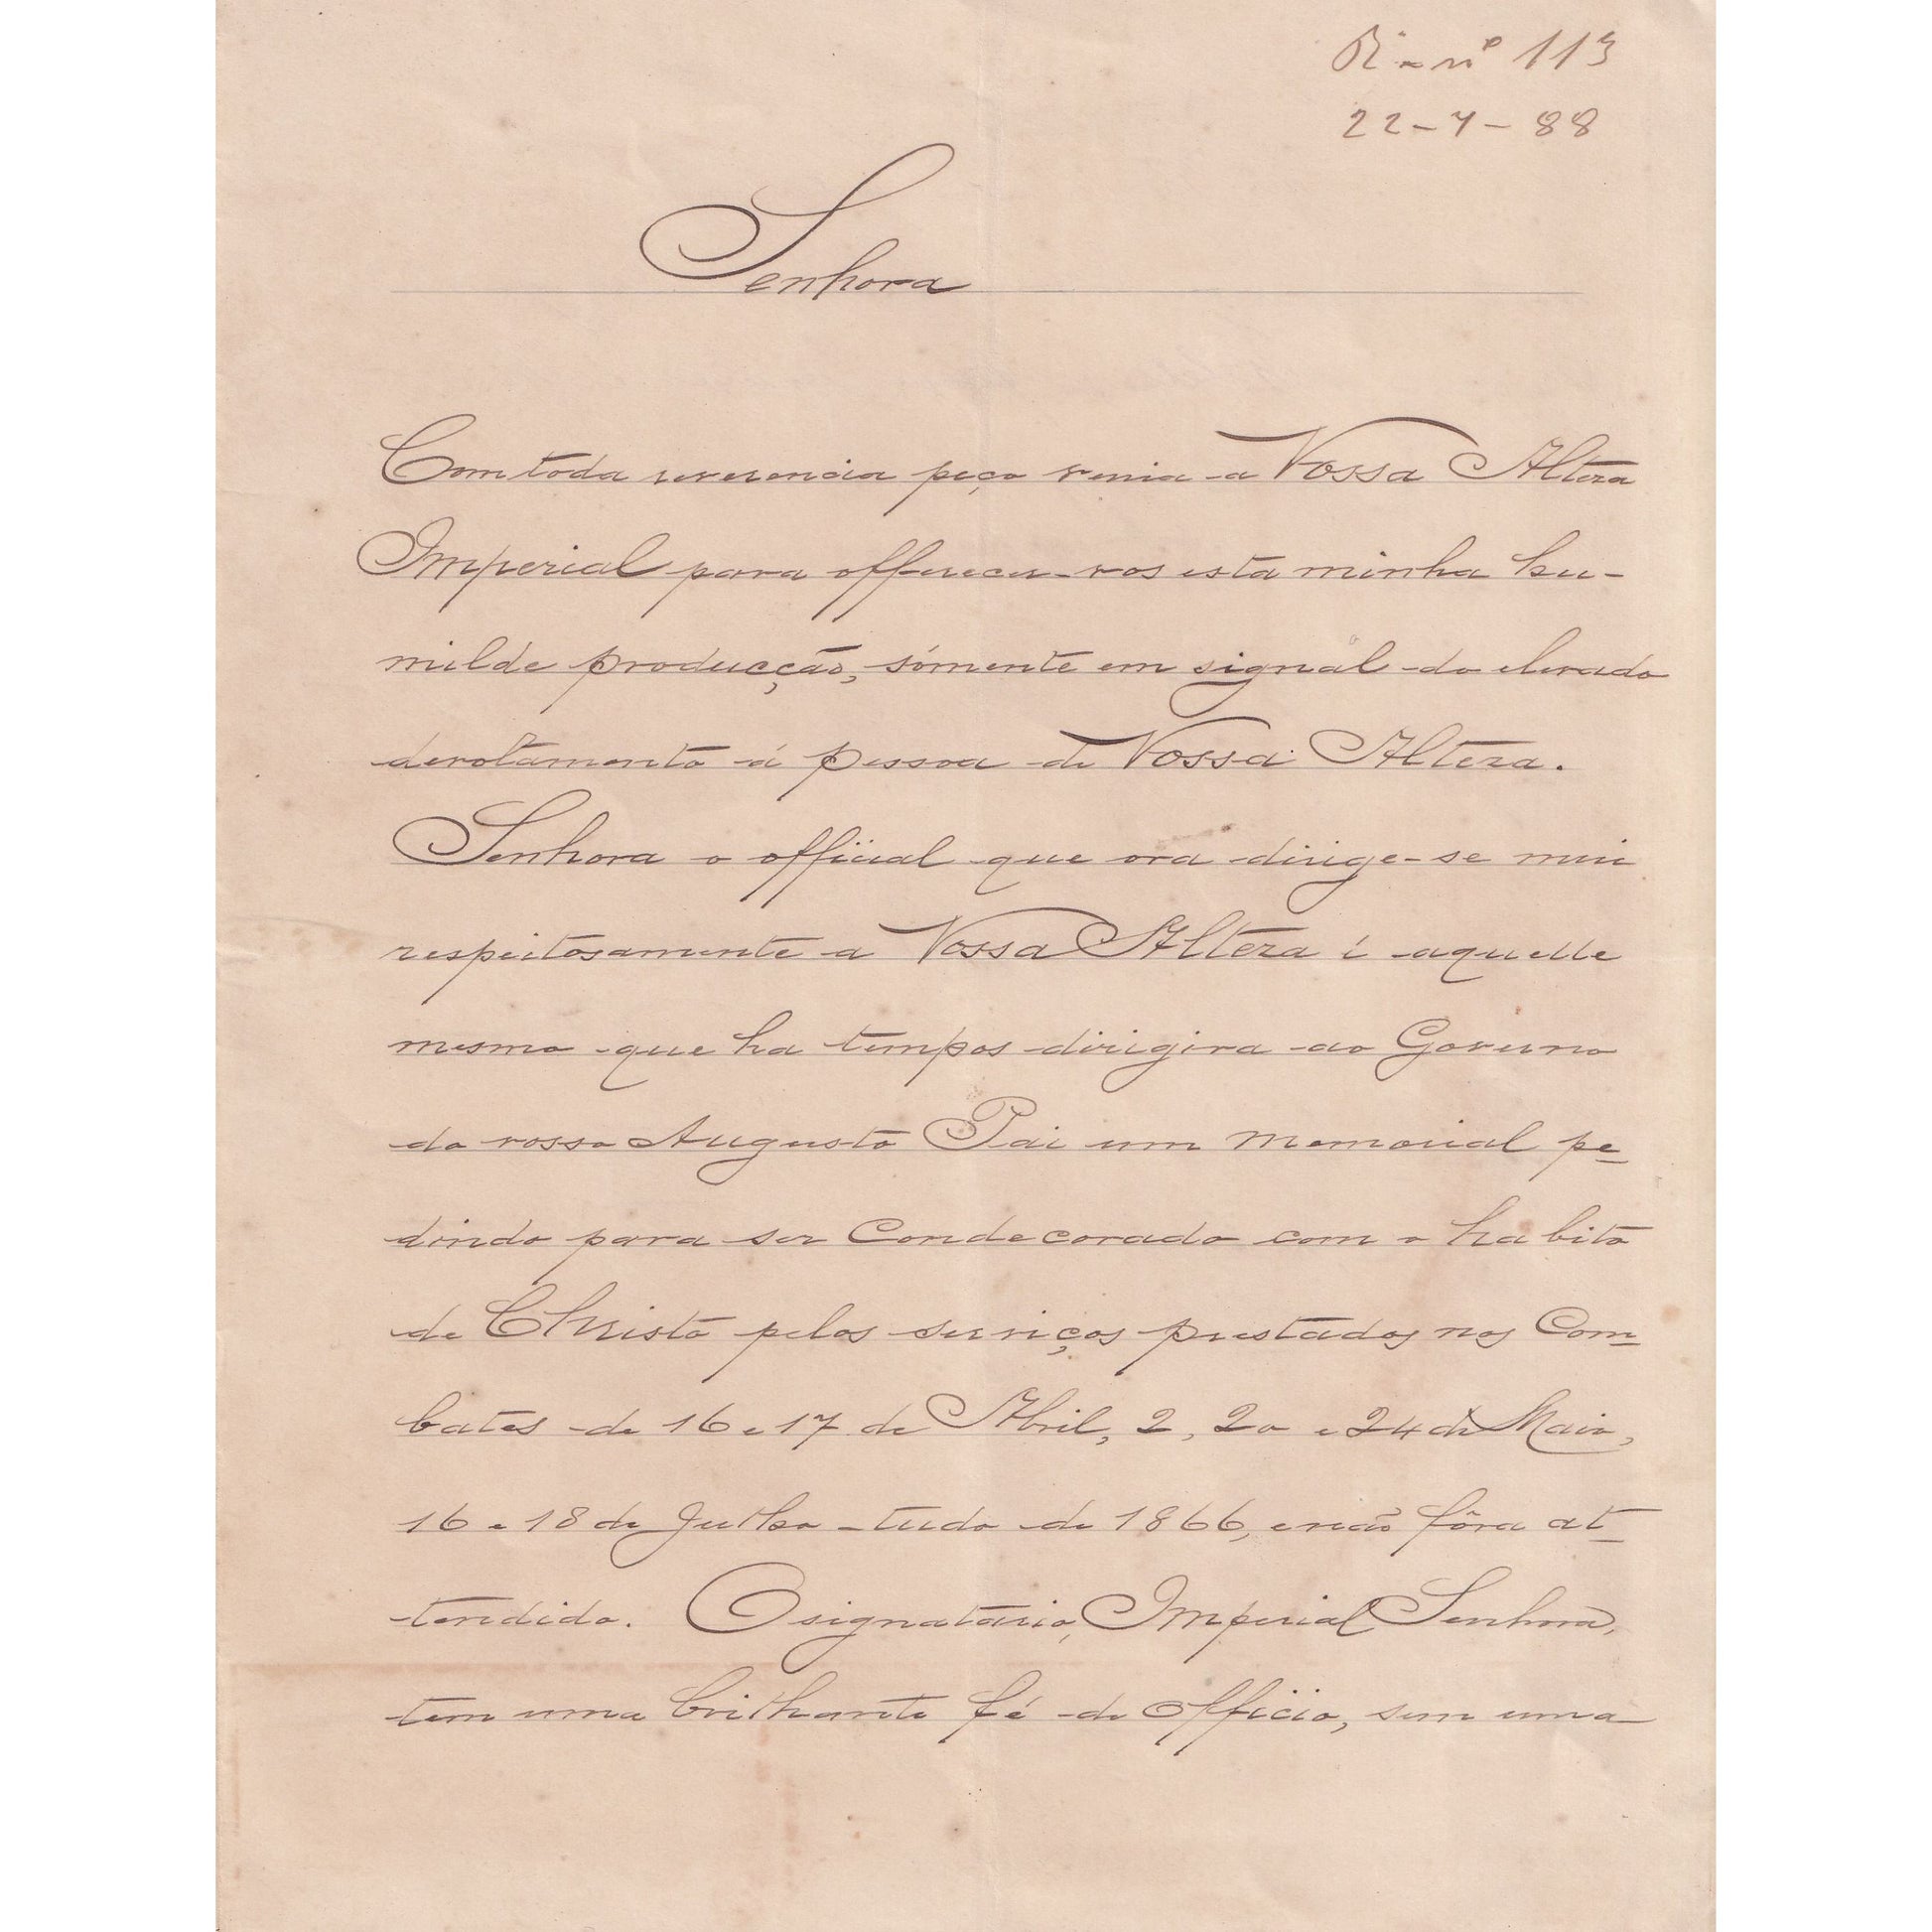 R. nº 113
22-7-88
Senhora
Com toda reverencia peço venia a Vossa Alteza
Imperial para offerecer-vos esta minha hu-
milde producção, sómente em signal do elevado
devotamento á pessoa de Vossa Alteza.
Senhora o official que ora dirige-se mui
respeitosamente a Vossa Alteza é aquelle
mesmo que ha tempos dirigira ao Governo
do vosso Augusto Pai um memorial pe-
dindo para ser Condecorado com o habito
de Christo pelos serviços prestados nos Com-
bates de 16 e 17 de Abril, 2, 20 e 24 de Maio,
16 e 18 de Julho tudo de 1866, e não fôra at-
tendido. O signatario, Imperial Senhora,
tem uma brilhante fé de officio, sem uma